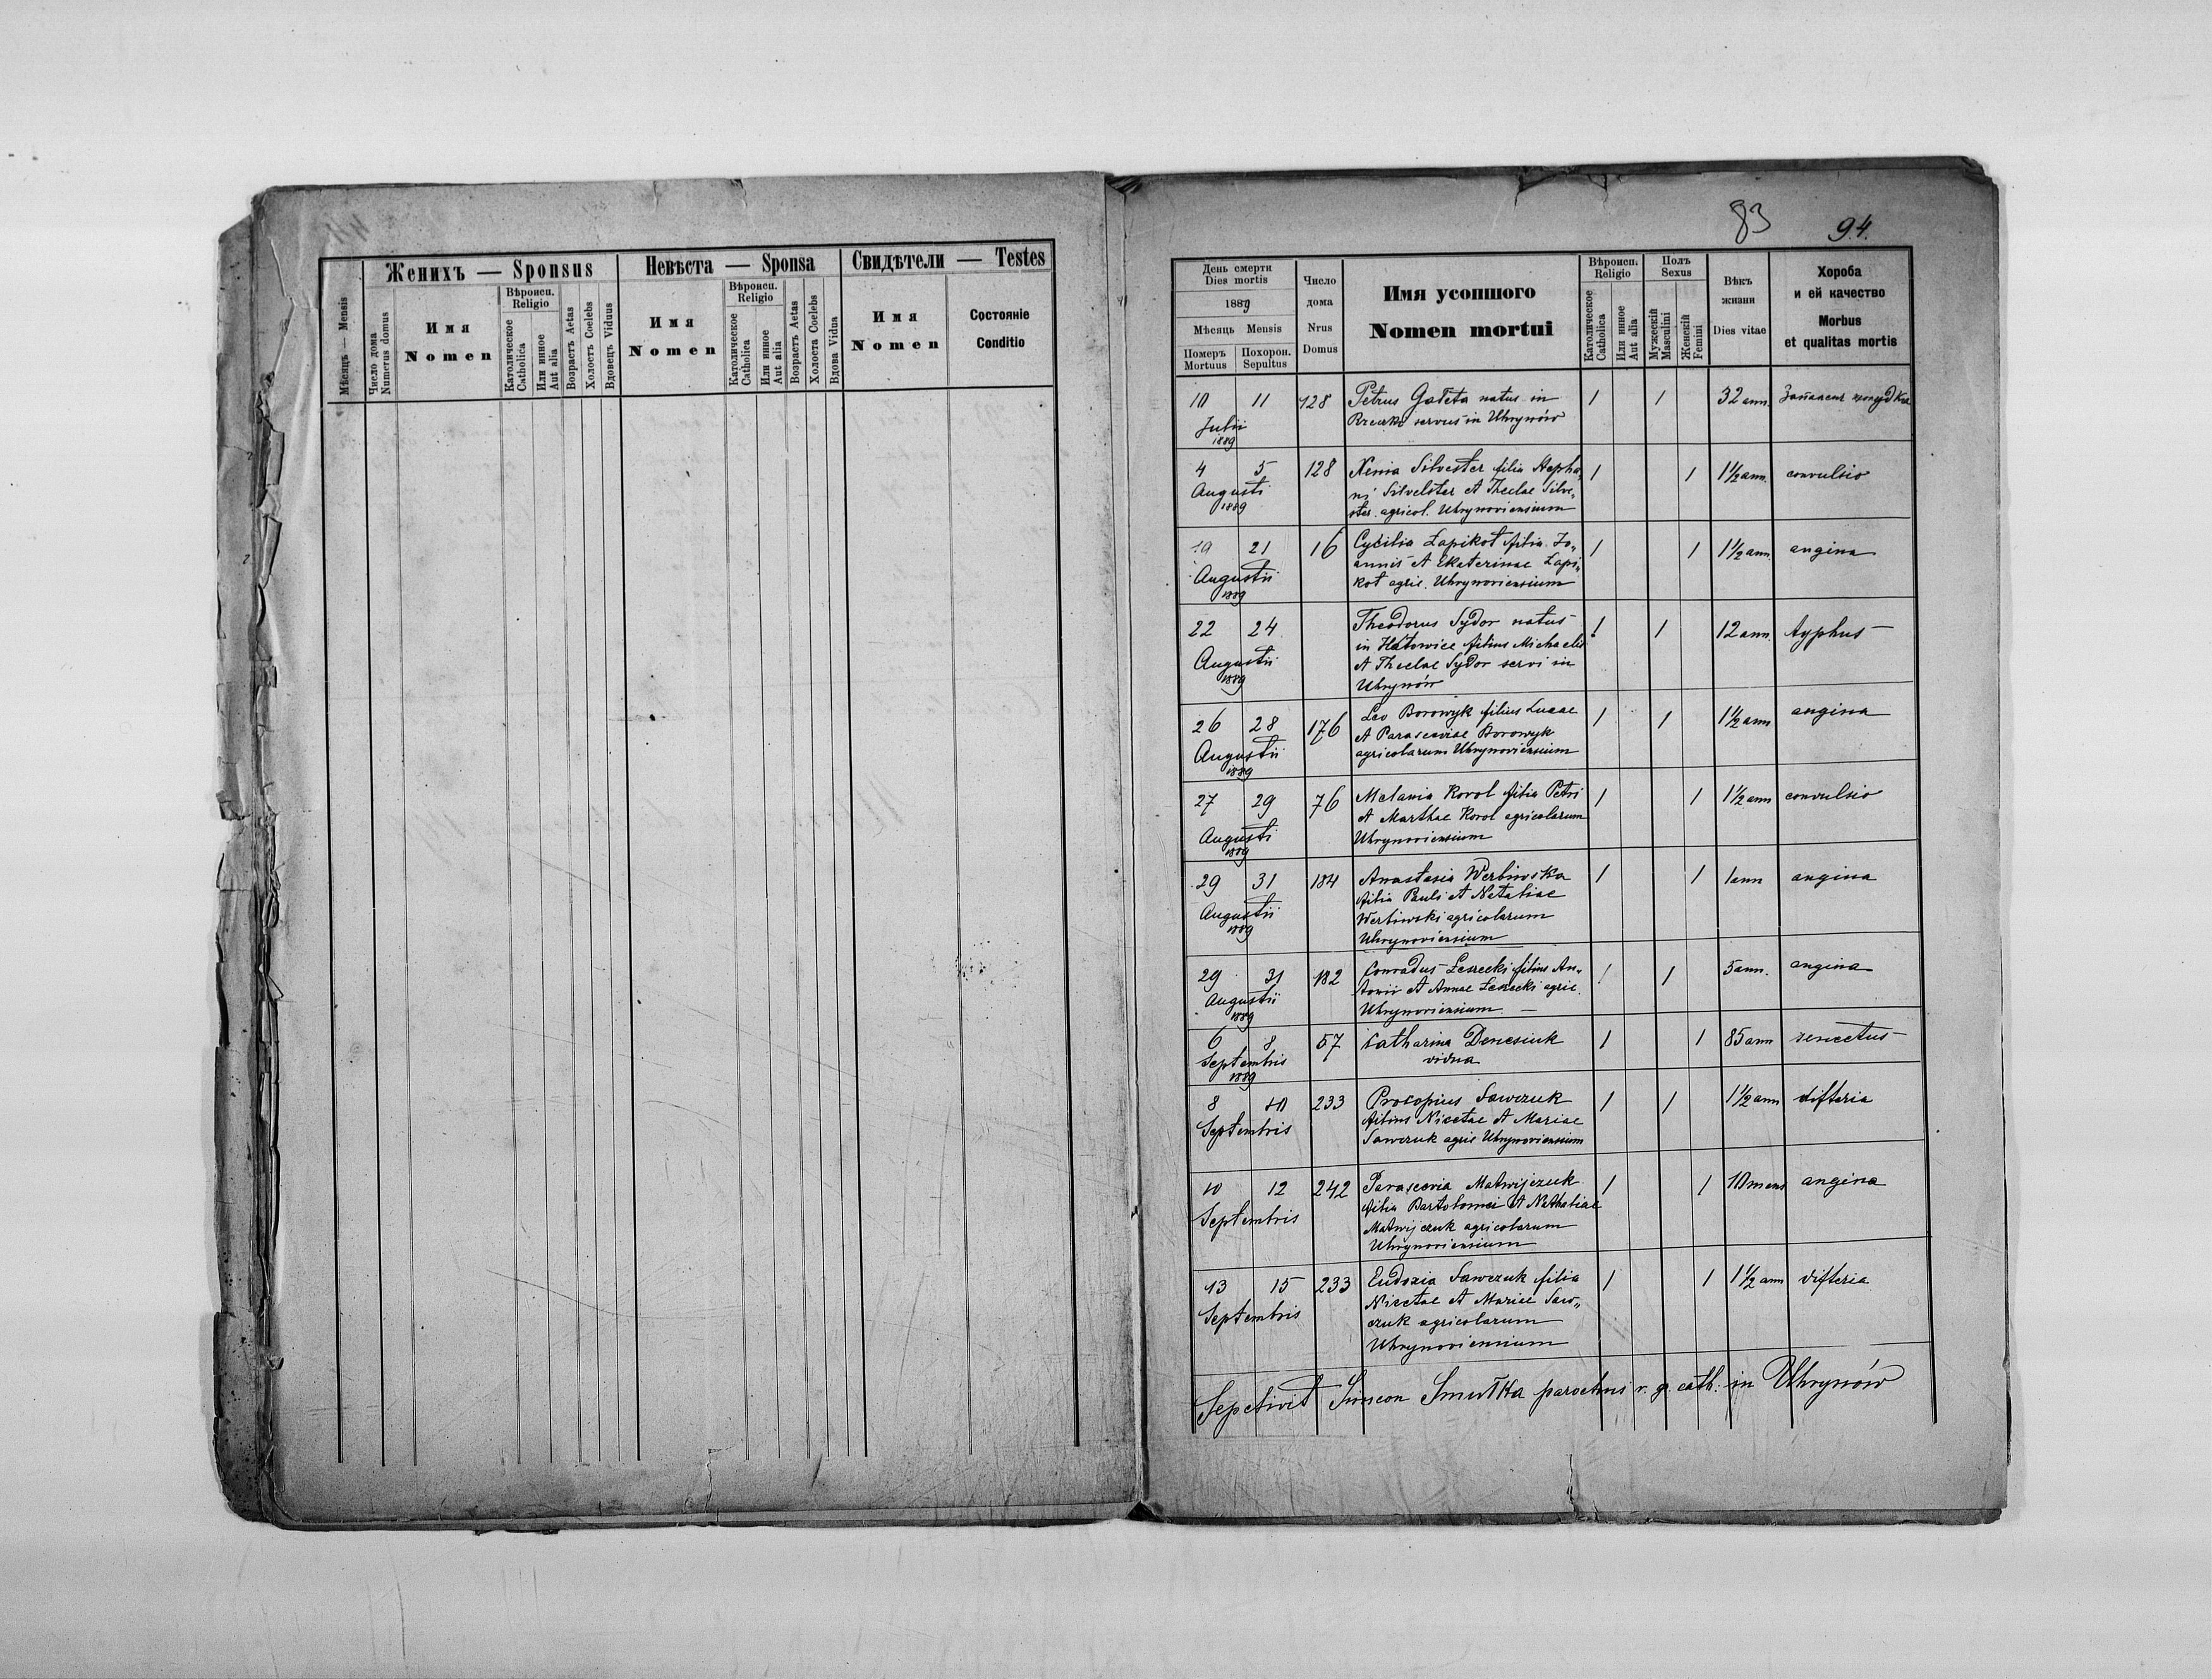 Женихъ — Sponsus
Невѣста — Sponsa
Свидѣтели — Testes
Мѣсяцъ — Mensis
Число дома
Numerus domus
Имя
Nomen
Вѣроисп.
Religio
Католическое
Catholica
Или инное
Aut alia
Возрастъ Aetas
Холостъ Coelebs
Вдовецъ Viduus
Имя
Nomen
Вѣроисп.
Religio
Католическое
Catholica
Или инное
Aut alia
Возрастъ Aetas
Холоста Coelebs
Вдова Vidua
Имя
Nomen
Состояніе
Conditio
83 94.
День смерти
Dies mortis
1889
Мѣсяць Mensis
Померъ
Mortuus
Похорон.
Sepultus
Число
дома
Nrus
Domus
Имя усопшого
Nomen mortui
Вѣроисп.
Religio
Католическое
Catholica
Или инное
Aut alia
Полъ
Sexus
Мужескій
Masculini
Женскій
Femini
Вѣкъ
жизни
Dies vitae
Хороба
и ей качество
Morbus
et qualitas mortis
10 11 128 Petrus Galeta natus in 1 1 32 ann.
Julii servus in Uhrynów
1889
4 5 128 Xenia Silvester filia Stepha„ 1 1 1½ ann. convulsio
Augusti ni Silvester et Theclae Silve„
1889 ster. agricol. Uhrynoviensium
19 21 16 Cycilia Łapikot filia Jo„ 1 1 1½ ann. angina
Augustii annis et Ekaterinae Łapi„
1889 kot agric. Uhrynoviensium
22 24 Theodorus Sydor natus 1 1 12 ann. typhus
Augustii in Hatowice filius Michaelis
1889 et Theclae Sydor servi in
Uhrynów
26 28 176 Leo Borowyk filius Lucae 1 1 1½ ann angina
Augustii et Parasceviae Borowyk
1889 agricolarum Uhrynoviensium
27 29 76 Melania Korol filia Petri 1 1 1½ ann convulsio
Augusti et Marthae Korol agricolarum
1889 Uhrynoviensium
29 31 184 Anastasia Werbiwska 1 1 1 ann angina
Augustii filia Pauli et Nataliae
1889 Werbiwski agricolarum
Uhrynoviensium
29 31 182 Conradus Leszecki filius An„ 1 1 5 ann. angina
Augustii tonii et Annae Leszecki agric.
1889 Uhrynoviensium
6 8 57 Catharina Denesiuk 1 1 85 ann senectus
Septembris vidua
1889
8 10 233 Procopius Sawczuk 1 1 1½ ann difteria
Septembris filius Nicetae et Mariae
Sawczuk agric Uhrynoviensium
10 12 242 Parascevia Matwijczuk 1 1 10 mens angina
Septembris filia Bartolomei et Nathaliae
Matwijczuk agricolarum
Uhrynoviensium
13 15 233 Eudoxia Sawczuk filia 1 1 1½ ann difteria
Septembris Nicetae et Mariae Saw„
czuk agricolarum
Uhrynoviensium
Sepelivit Simeon Smulka parochus r. g. cath: in Uhrynów